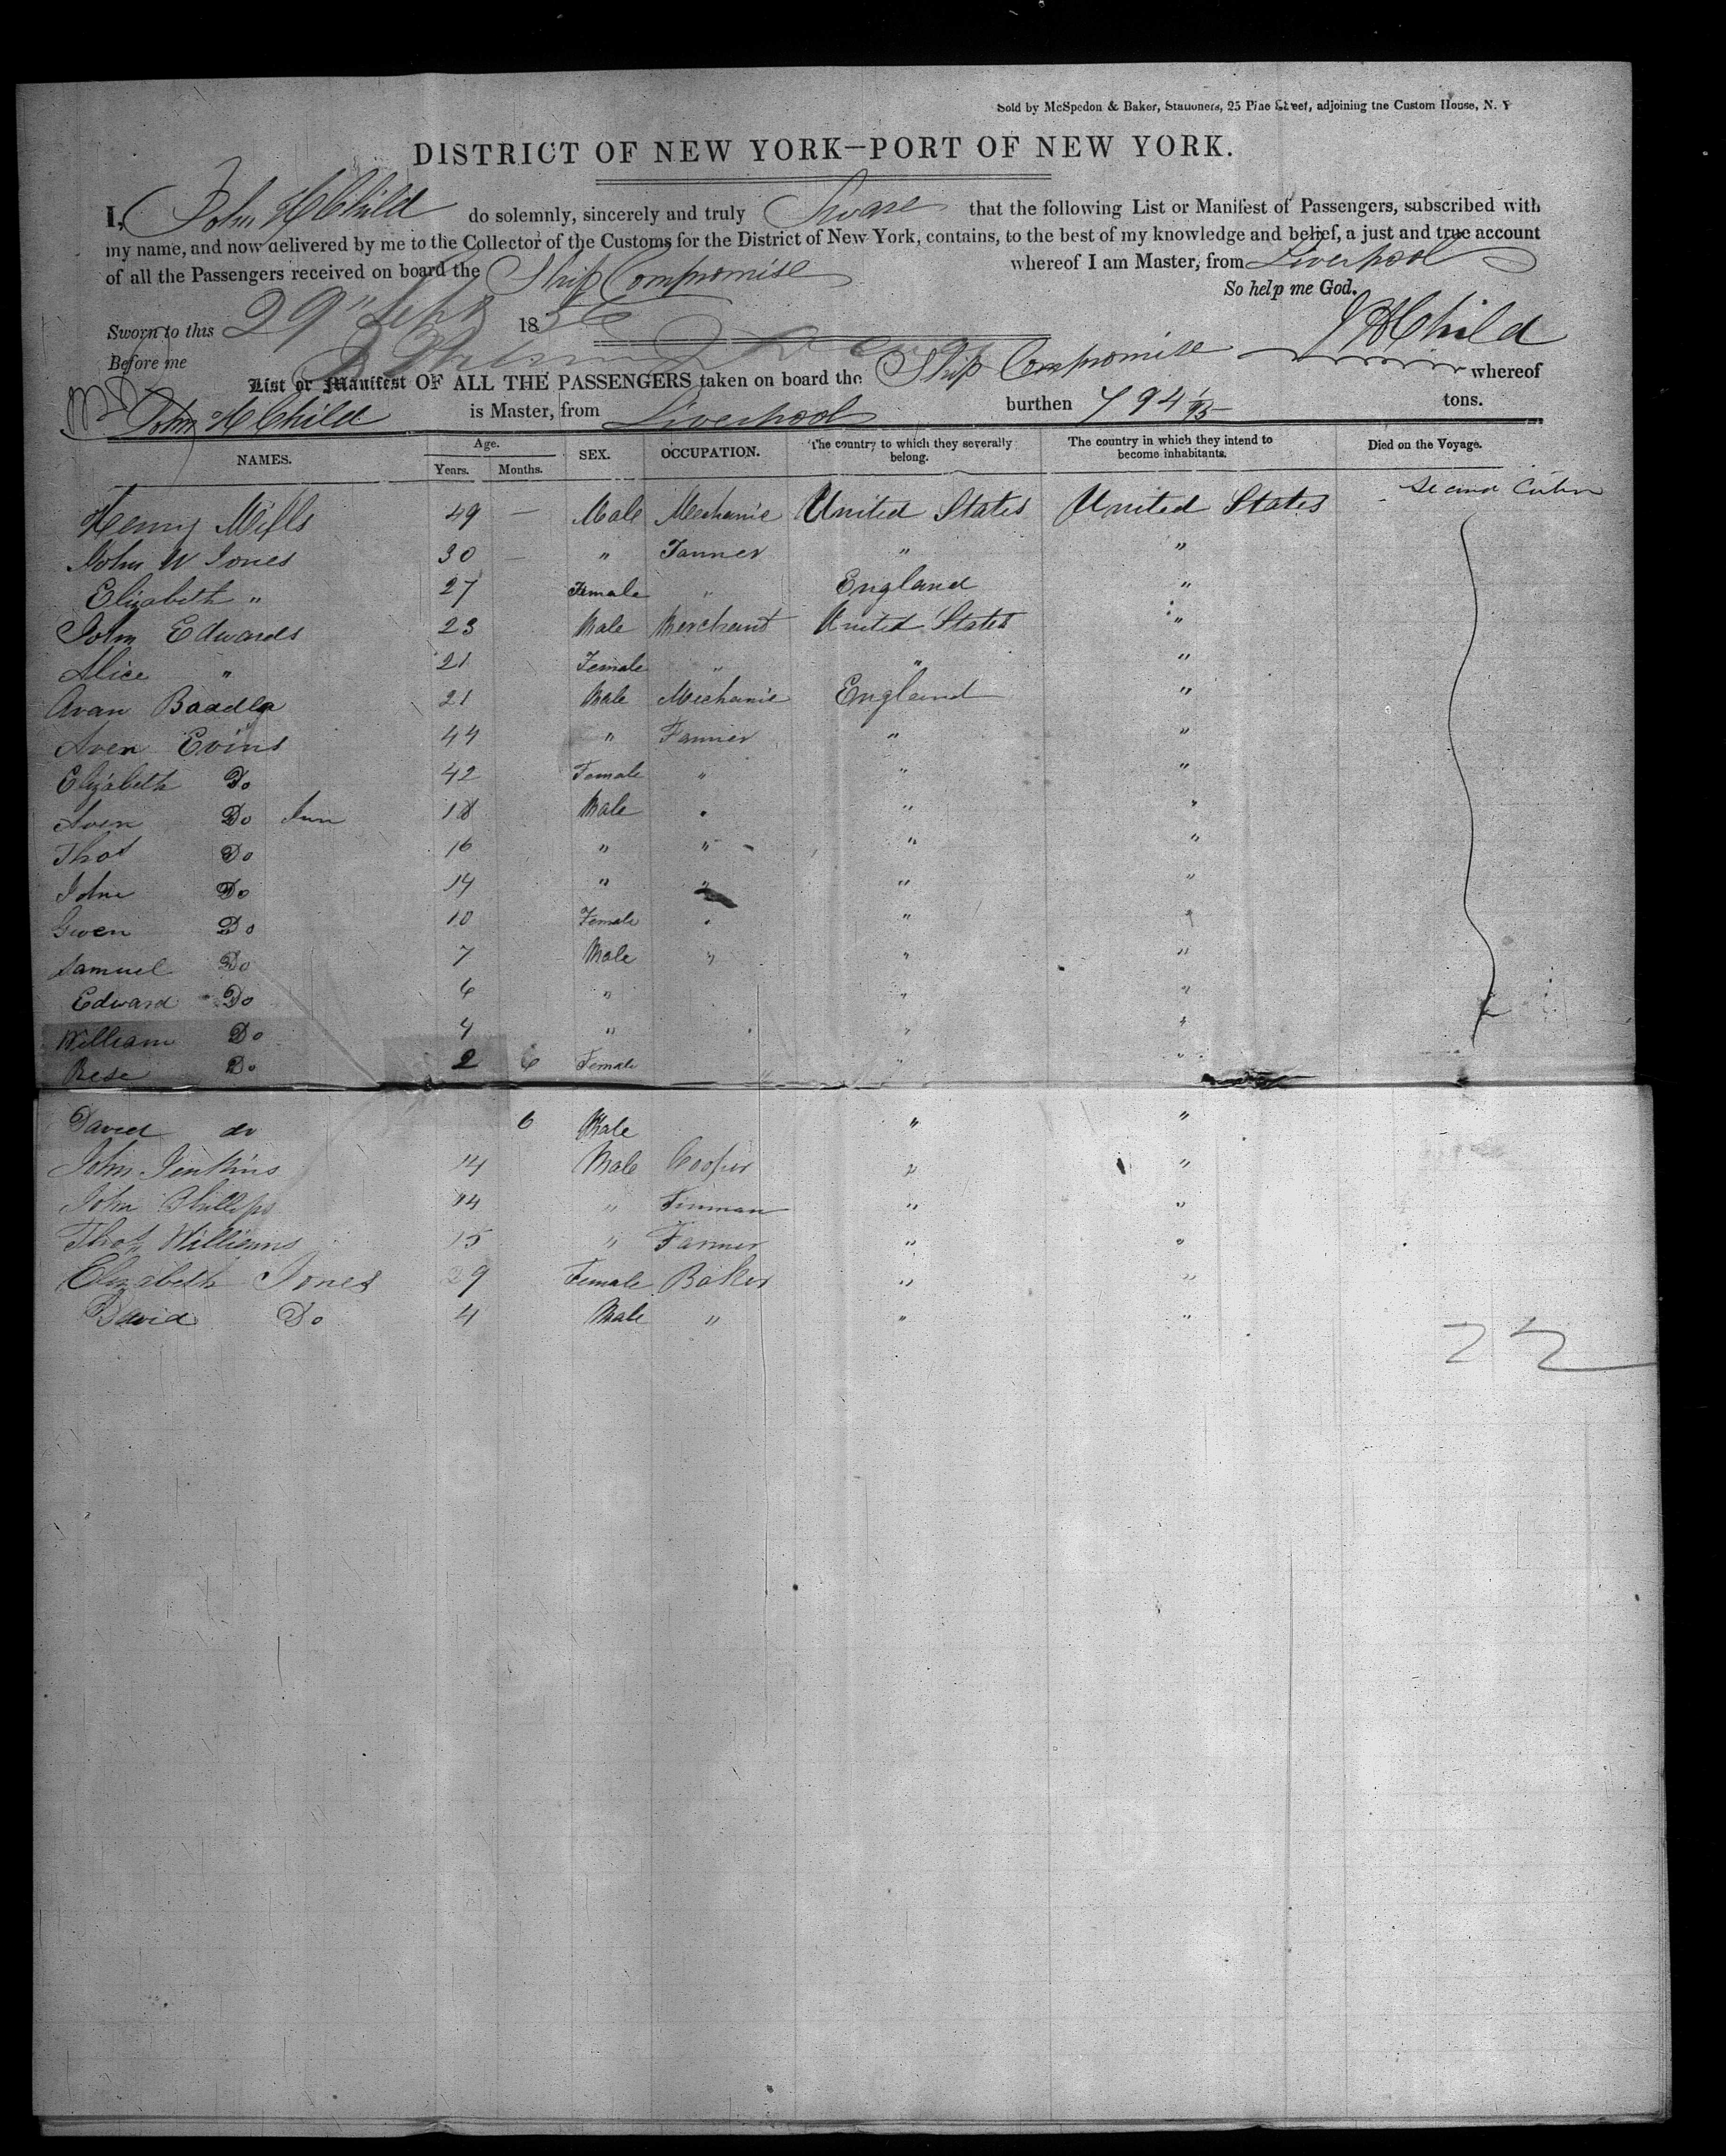 Sold by McSpedon & Baker, Stationers, 25 Pine Street, adjoining the Custom House, N. Y
DISTRICT OF NEW YORK—PORT OF NEW YORK.
I, John H Child do solemnly, sincerely and truly Sware that the following List or Manifest of Passengers, subscribed with
my name, and now delivered by me to the Collector of the Customs for the District of New York, contains, to the best of my knowledge and belief, a just and true account
of all the Passengers received on board the Ship Compromise whereof I am Master, from Liverpool
So help me God.
Sworn to this 29" Sept 1856 J H Child
Before me
List or Manifest OF ALL THE PASSENGERS taken on board the Ship Compromise whereof
John H Child is Master, from Liverpool burthen 794 /95 tons.
NAMES. Age. Years. Months. SEX. OCCUPATION. The country to which they severally belong. The country in which they intend to become inhabitants. Died on the Voyage.
Second Cabin
Henry Mills 49 — Male Mechanic United States United States
John W Jones 30 — " Tanner " "
Elizabeth " 27 Female " England "
John Edwards 23 Male Merchant United States "
Alice " 21 Female " " "
Avan 21 Male Mechanic England "
Aven Evins 44 " Farmer " "
Elizabeth Do 42 Female " " "
Aven Do Jun 18 Male " " "
Thos Do 16 " " " "
John Do 14 " " " "
Gwen Do 10 Female " " "
Samuel Do 7 Male " " "
Edward Do 6 " " "
William Do 4 " " "
Rese Do 2 6 Female " "
David do 6 Male " "
John Jenkins 14 Male Cooper " "
John Phillips 14 " " "
Thos Williams 15 " Farmer " "
Elizabeth Jones 29 Female Baker " "
David Do 4 Male " " "
22